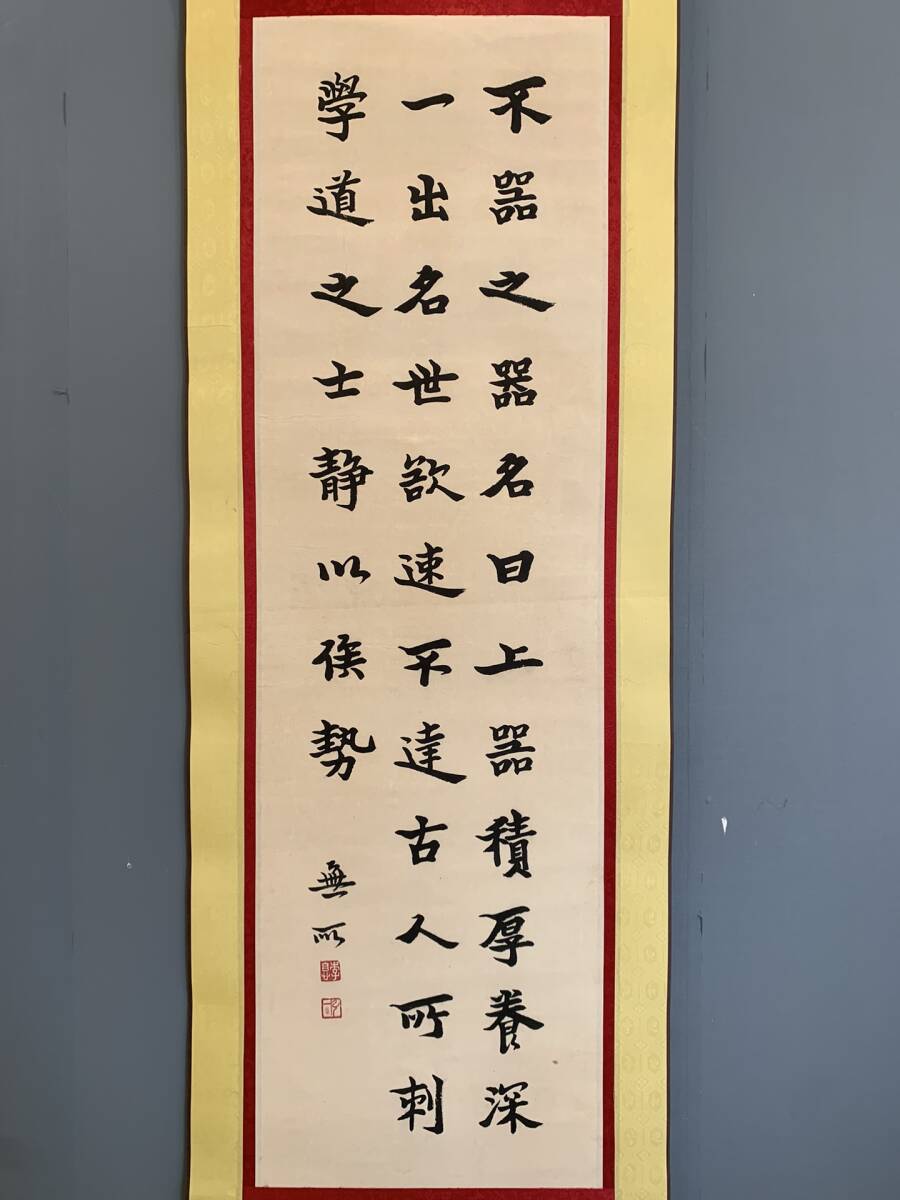 不器之器名曰上器積厚養深
一出名世欲速不達古人所刺
學道之士静以俟勢
無所